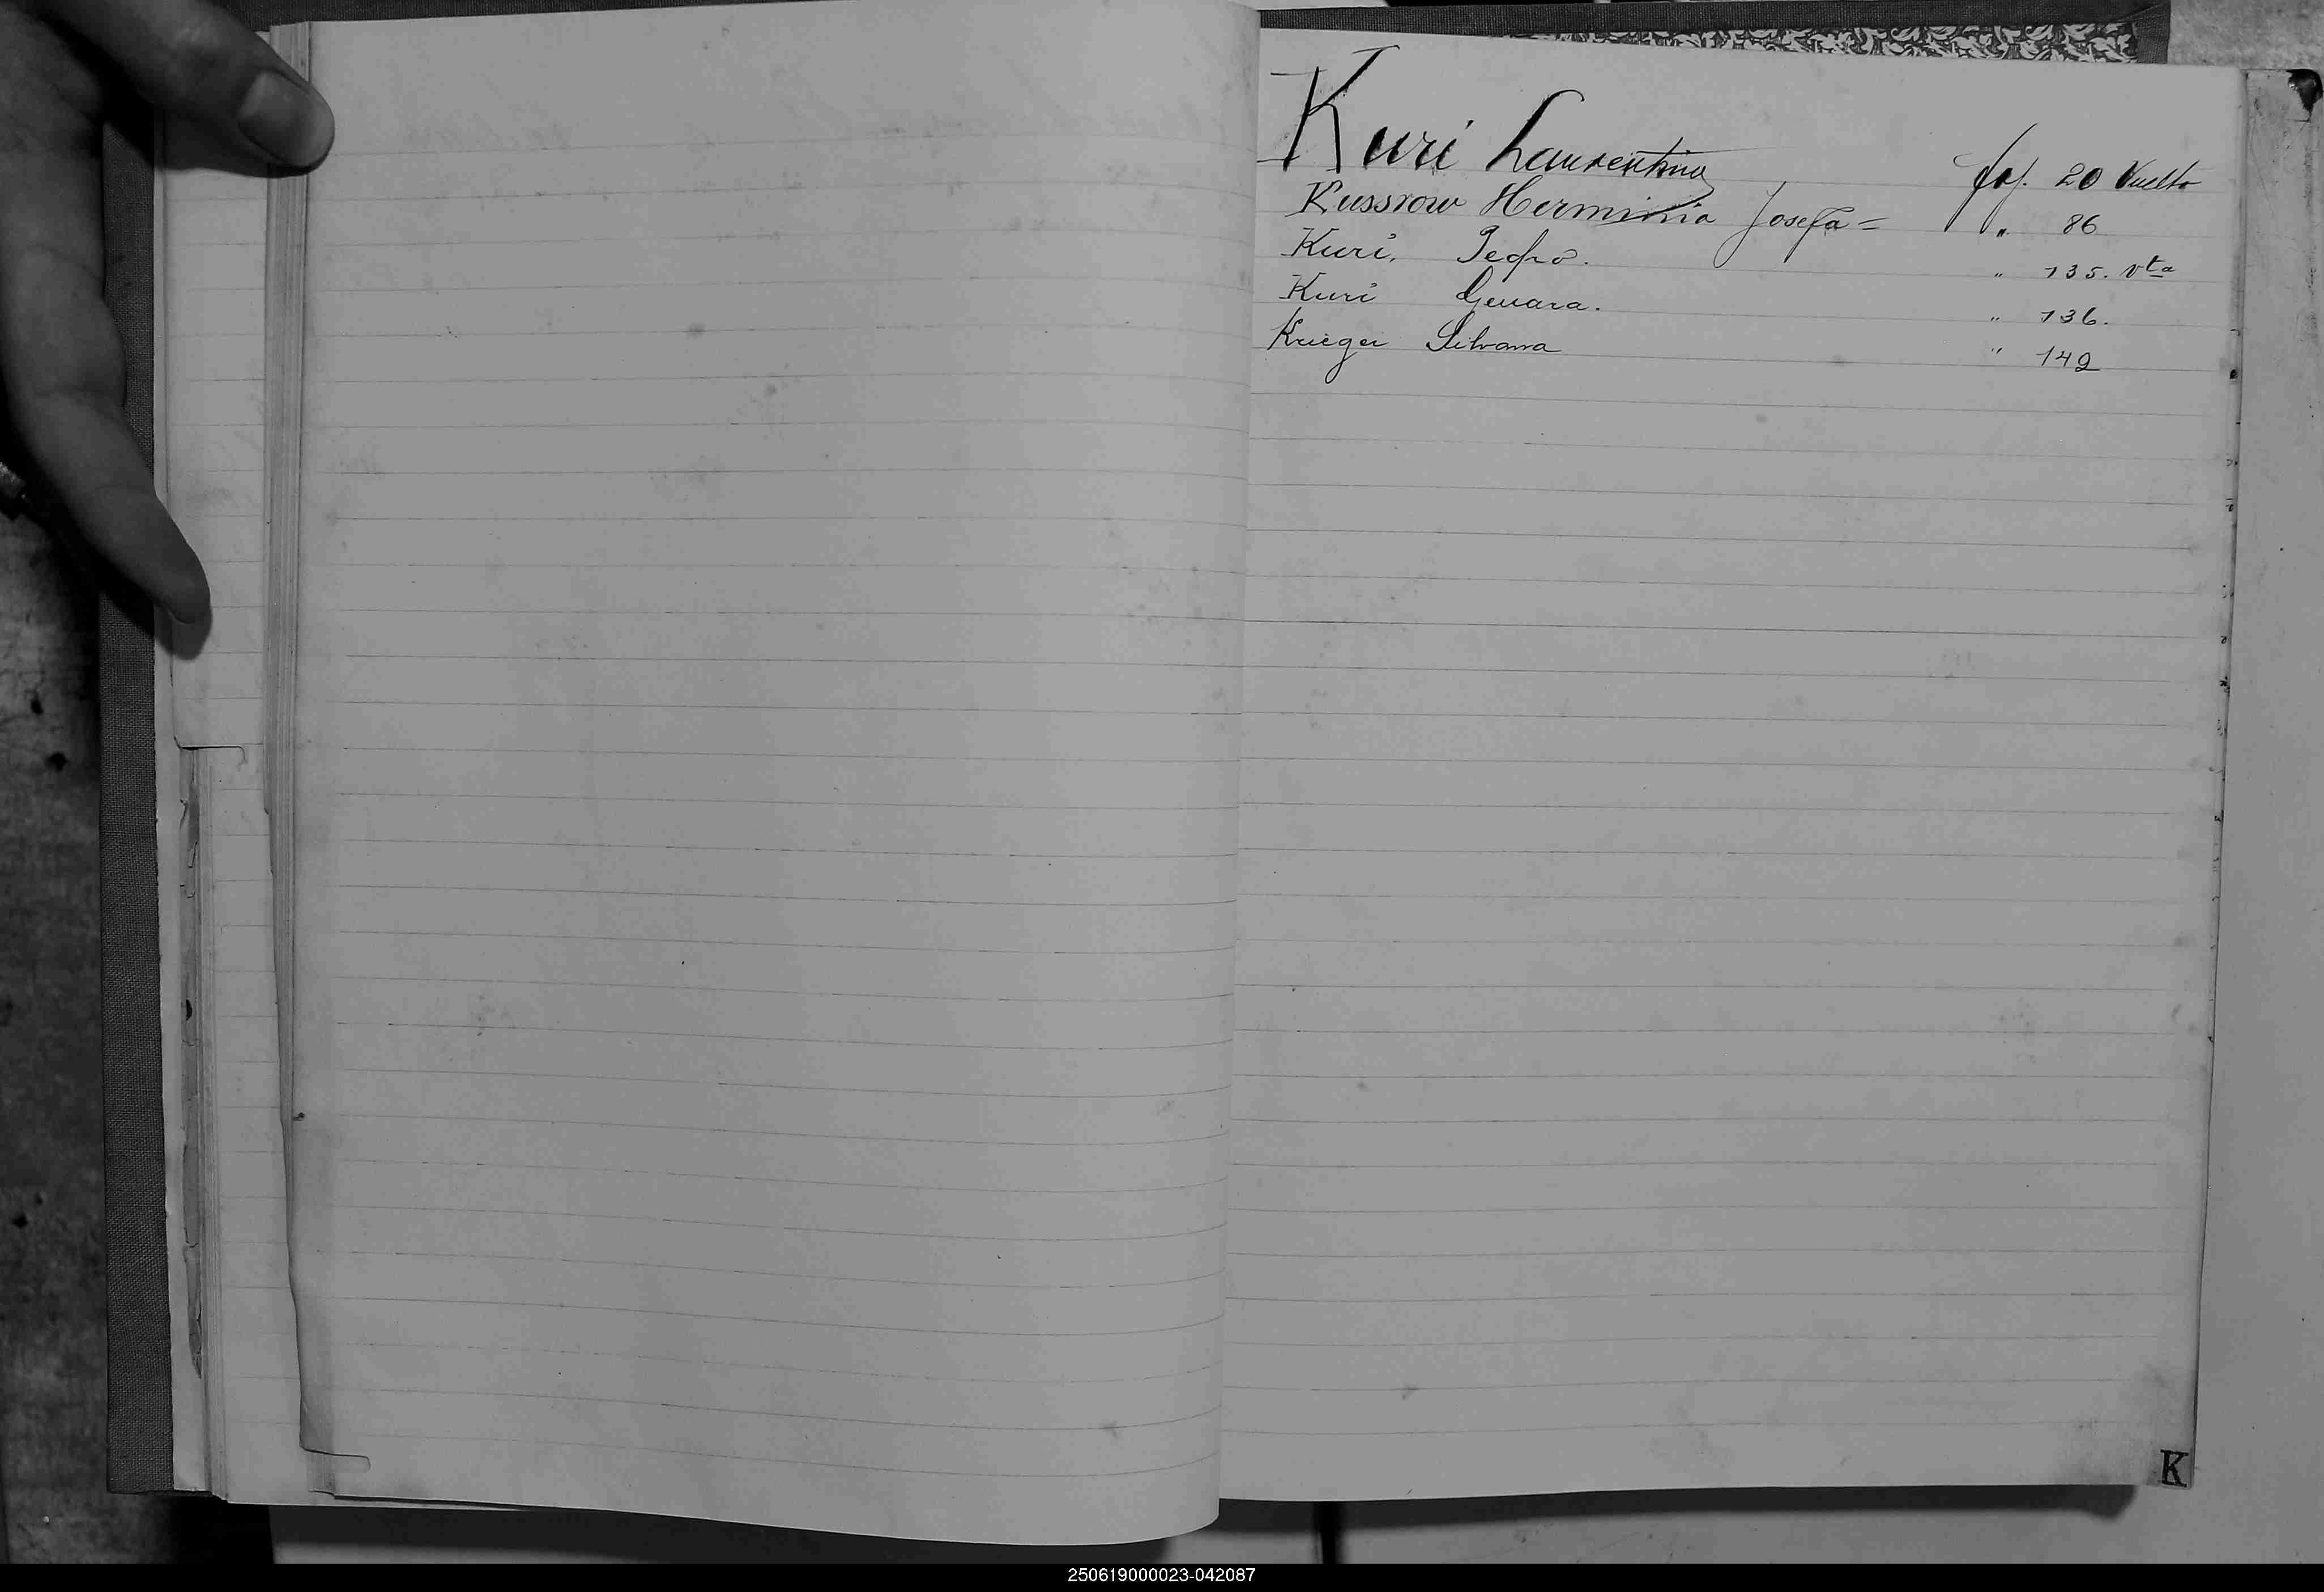 Kuri Laurentino foj. 20 Vuelto
Kussrow Herminia Josefa = " 86
Kuri. Pedro. " 135. vta
Kuri Genara. " 136.
Krieger Silvana " 149
K
250619000023-042087